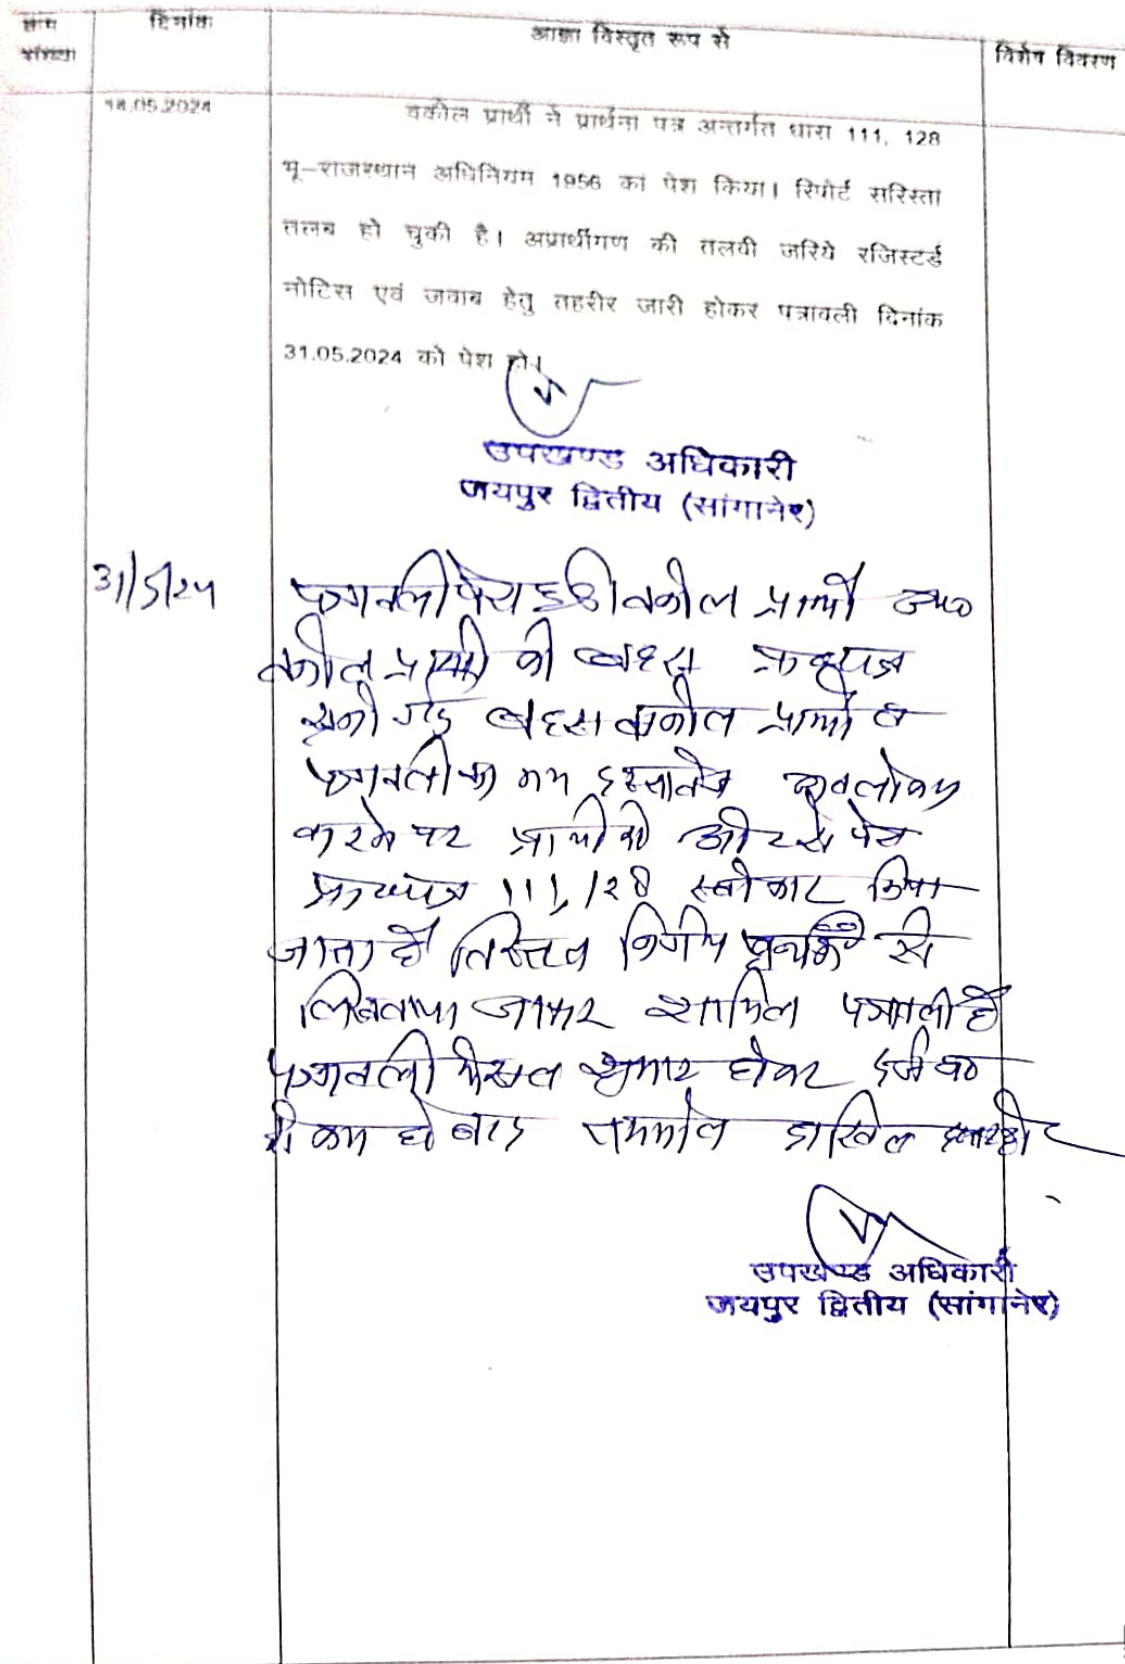 दिनांक
संख्या
आज्ञा विस्तृत रूप से
विशेष विवरण
18.05.2024
वकील प्रार्थी ने प्रार्थना पत्र अन्तर्गत धारा 111, 128
भू–राजस्थान अधिनियम 1956 का पेश किया। रिपोर्ट सरिस्ता
तलब हो चुकी है। अप्रार्थीगण की तलवी जरिये रजिस्टर्ड
नोटिस एवं जवाब हेतु तहरीर जारी होकर पत्रावली दिनांक
31.05.2024 को पेश हो।
उपखण्ड अधिकारी
जयपुर द्वितीय (सांगानेर)
31/5/24
पत्रावली पेश हुई। वकील प्रार्थी उप०
वकील प्रार्थी की बहस
सुनी गई बहस वकील प्रार्थी व
पत्रावली का मय दस्तावेज अवलोकन
करने पर प्रार्थी की ओर से पेश
111, 128 स्वीकार किया
जाता है विस्तृत निर्णय पृथक से
लिखवाया जाकर शामिल पत्रावली है
पत्रावली फैसल शुमार होकर दर्ज
से कम हो बाद तकमील दाखिल दफ्तर हो
उपखण्ड अधिकारी
जयपुर द्वितीय (सांगानेर)